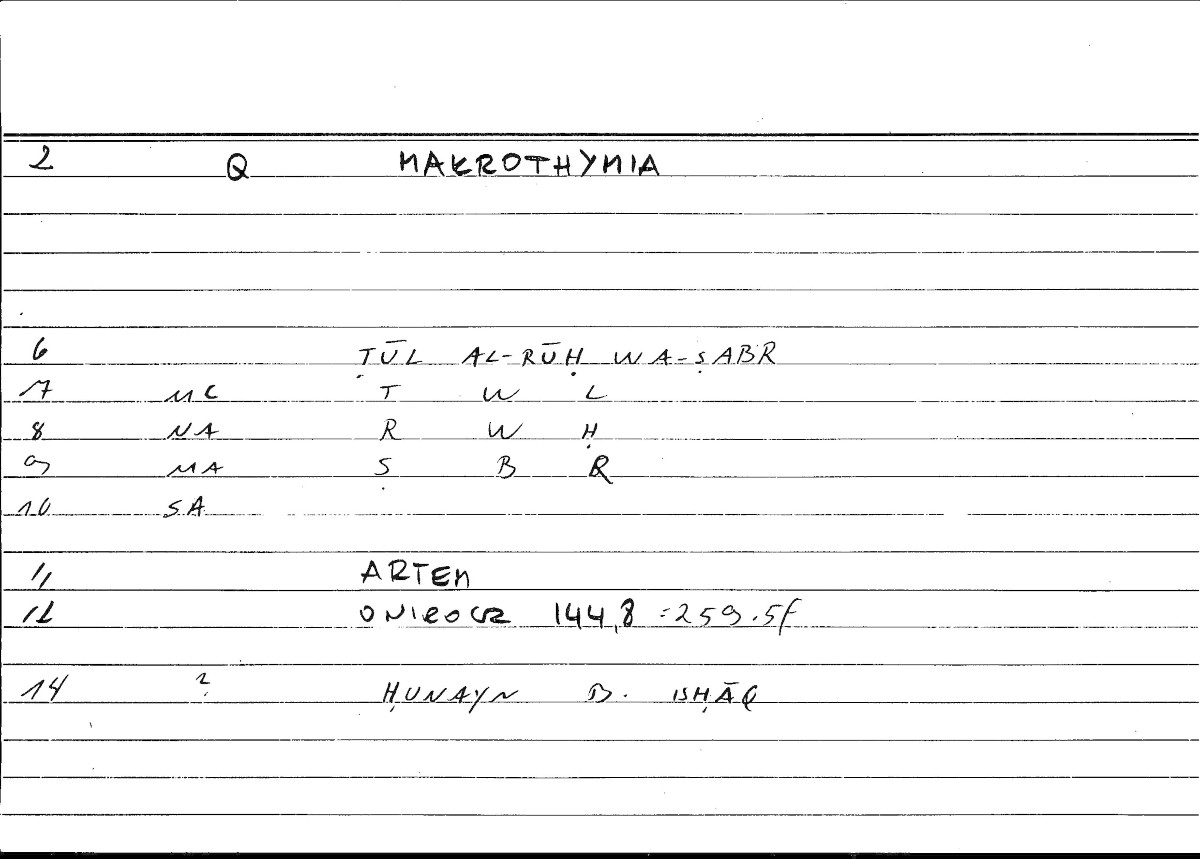 2 Q MAKROTHYMIA
6 ṬŪL AL-RŪḤ WA-ṢABR
7 MC Ṭ W L
8 NA R W Ḥ
9 MA Ṣ B R
10 SA
11 ARTEM
12 ONIROCR 144,8 =259.5f
14 ? ḤUNAYN B. ISḤĀQ